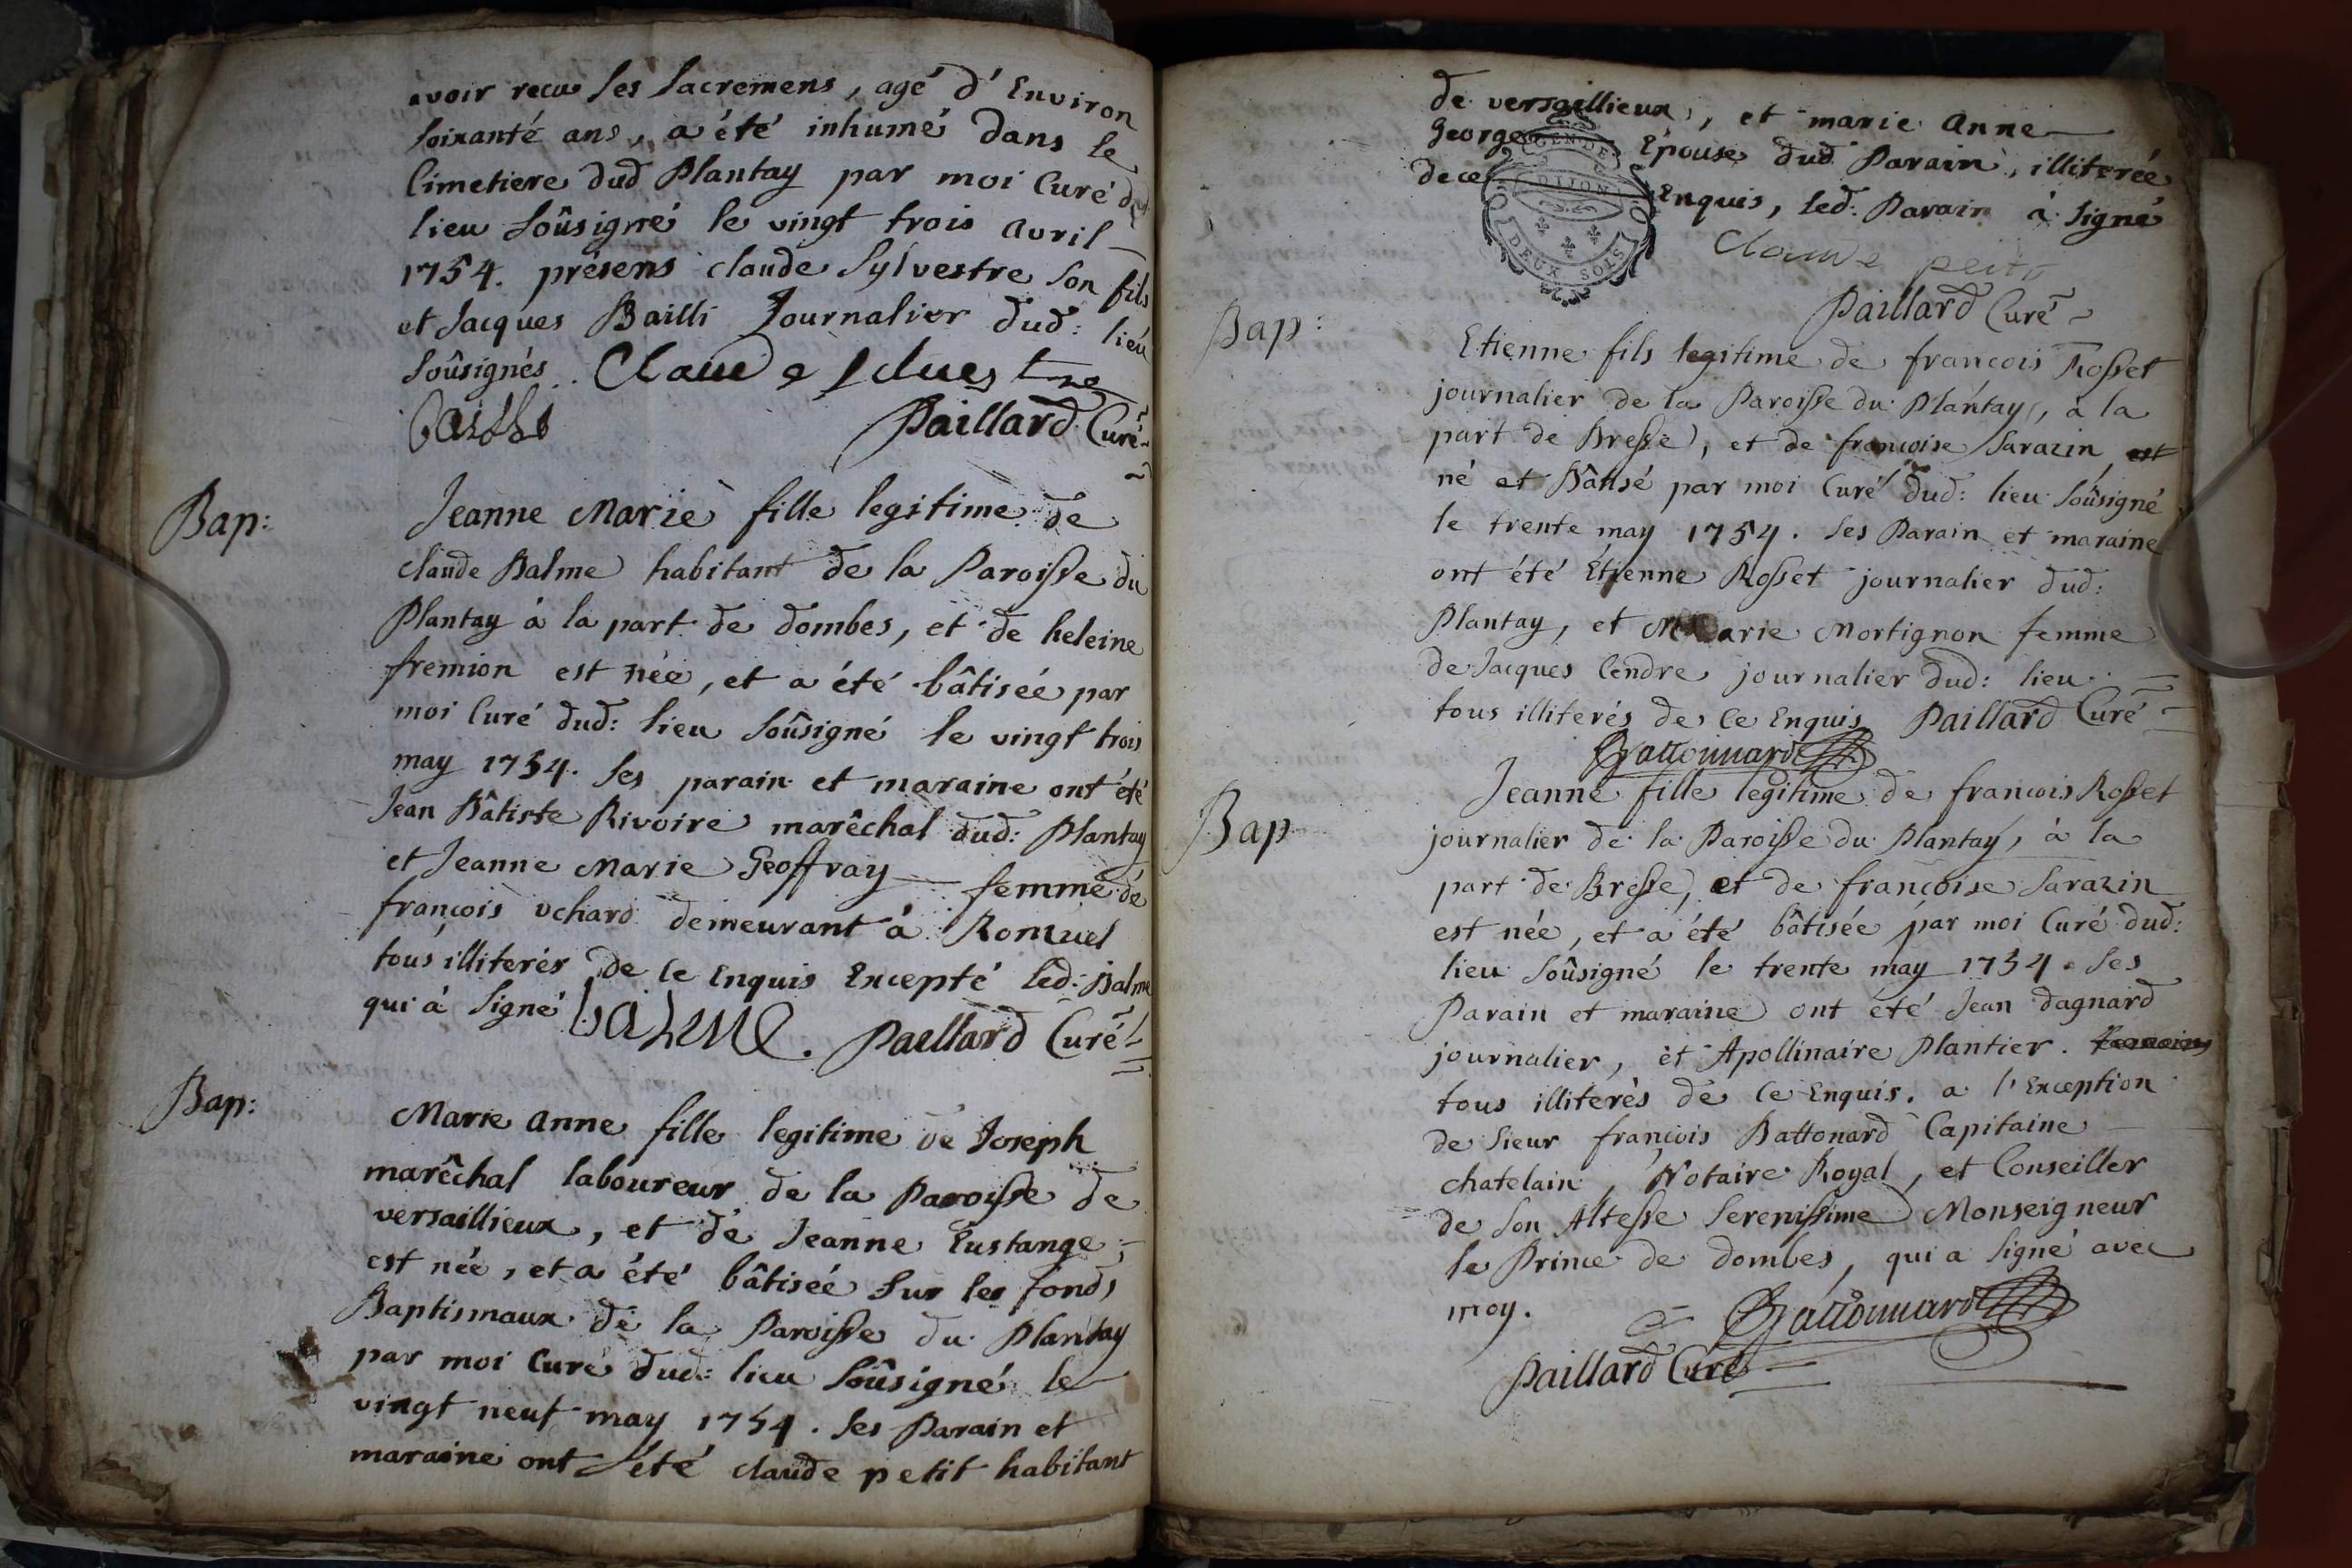 avoir recu les sacremens, agé d'Environ
soixanté ans, a été inhumé dans le
Cimetiere dud Plantay par moi Curé dud
lieu soûsigné le vingt trois avril
1754. présens claude Sylvestre son fils
et Jacques Bailli Journalier dud: lieu
soûsignés.. Claude silvestre
bailli Paillard Curé
Bap:
Jeanne Marie fille legitime de
claude Balme habitant de la Paroisse du
Plantay à la part de dombes, et de heleine
fremion est née, et a été bâtisée par
moi Curé dud: lieu soûsigné le vingt trois
may 1754. ses parain et maraine ont été
Jean Bâtiste Rivoire marêchal dud: Plantay
et Jeanne Marie Geoffray femme de
françois vchard demeurant à Ronzuel
tous illiterés de ce Enquis Excepté led: Balme
qui à signé balme. Paillard Curé
Bap:
Marie anne fille legitime de Joseph
marêchal laboureur de la Paroisse de
versaillieux, et de Jeanne Eustange
est née, et a été bâtisée sur les fonds
Baptismaux de la Paroisse du Plantay
par moi Curé dud: lieu soûsigné le
vingt neuf may 1754. ses Parain et
maraine ont été claude petit habitant
de versaillieux, et marie anne
George Epouse dud Parain, illiterée
de ce Enquis, led: Parain à signé
GEN DE
DIJON
DEUX SOLS
Claude petit
Paillard Curé
Bap:
Etienne fils legitime de francois Rosset
journalier de la Paroisse du Plantay, à la
part de Bresse, et de françoise Sarazin est
né et Bâtisé par moi Curé dud: lieu soûsigné
le trente may 1754. ses Parain et maraine
ont été Etienne Rosset journalier dud:
Plantay, et Marie Mortignon femme
de Jacques Cendre journalier dud: lieu
tous illiterés de ce Enquis Paillard Curé
Battonnard
Bap
Jeanne fille legitime de francois Rosset
journalier de la Paroisse du Plantay, à la
part de Bresse, et de françoise Sarazin
est née, et a été bâtisée par moi Curé dud:
lieu soûsigné le trente may 1754. ses
Parain et maraine ont été Jean dagnard
journalier, et Apollinaire Plantier.
tous illiterés de ce Enquis. a l'Exception
de sieur françois Battonard Capitaine
chatelain, Notaire Royal, et Conseiller
de son Altesse Serenissime Monseigneur
le Prince de dombes, qui a signé avec
moy. Battonnard
Paillard Curé